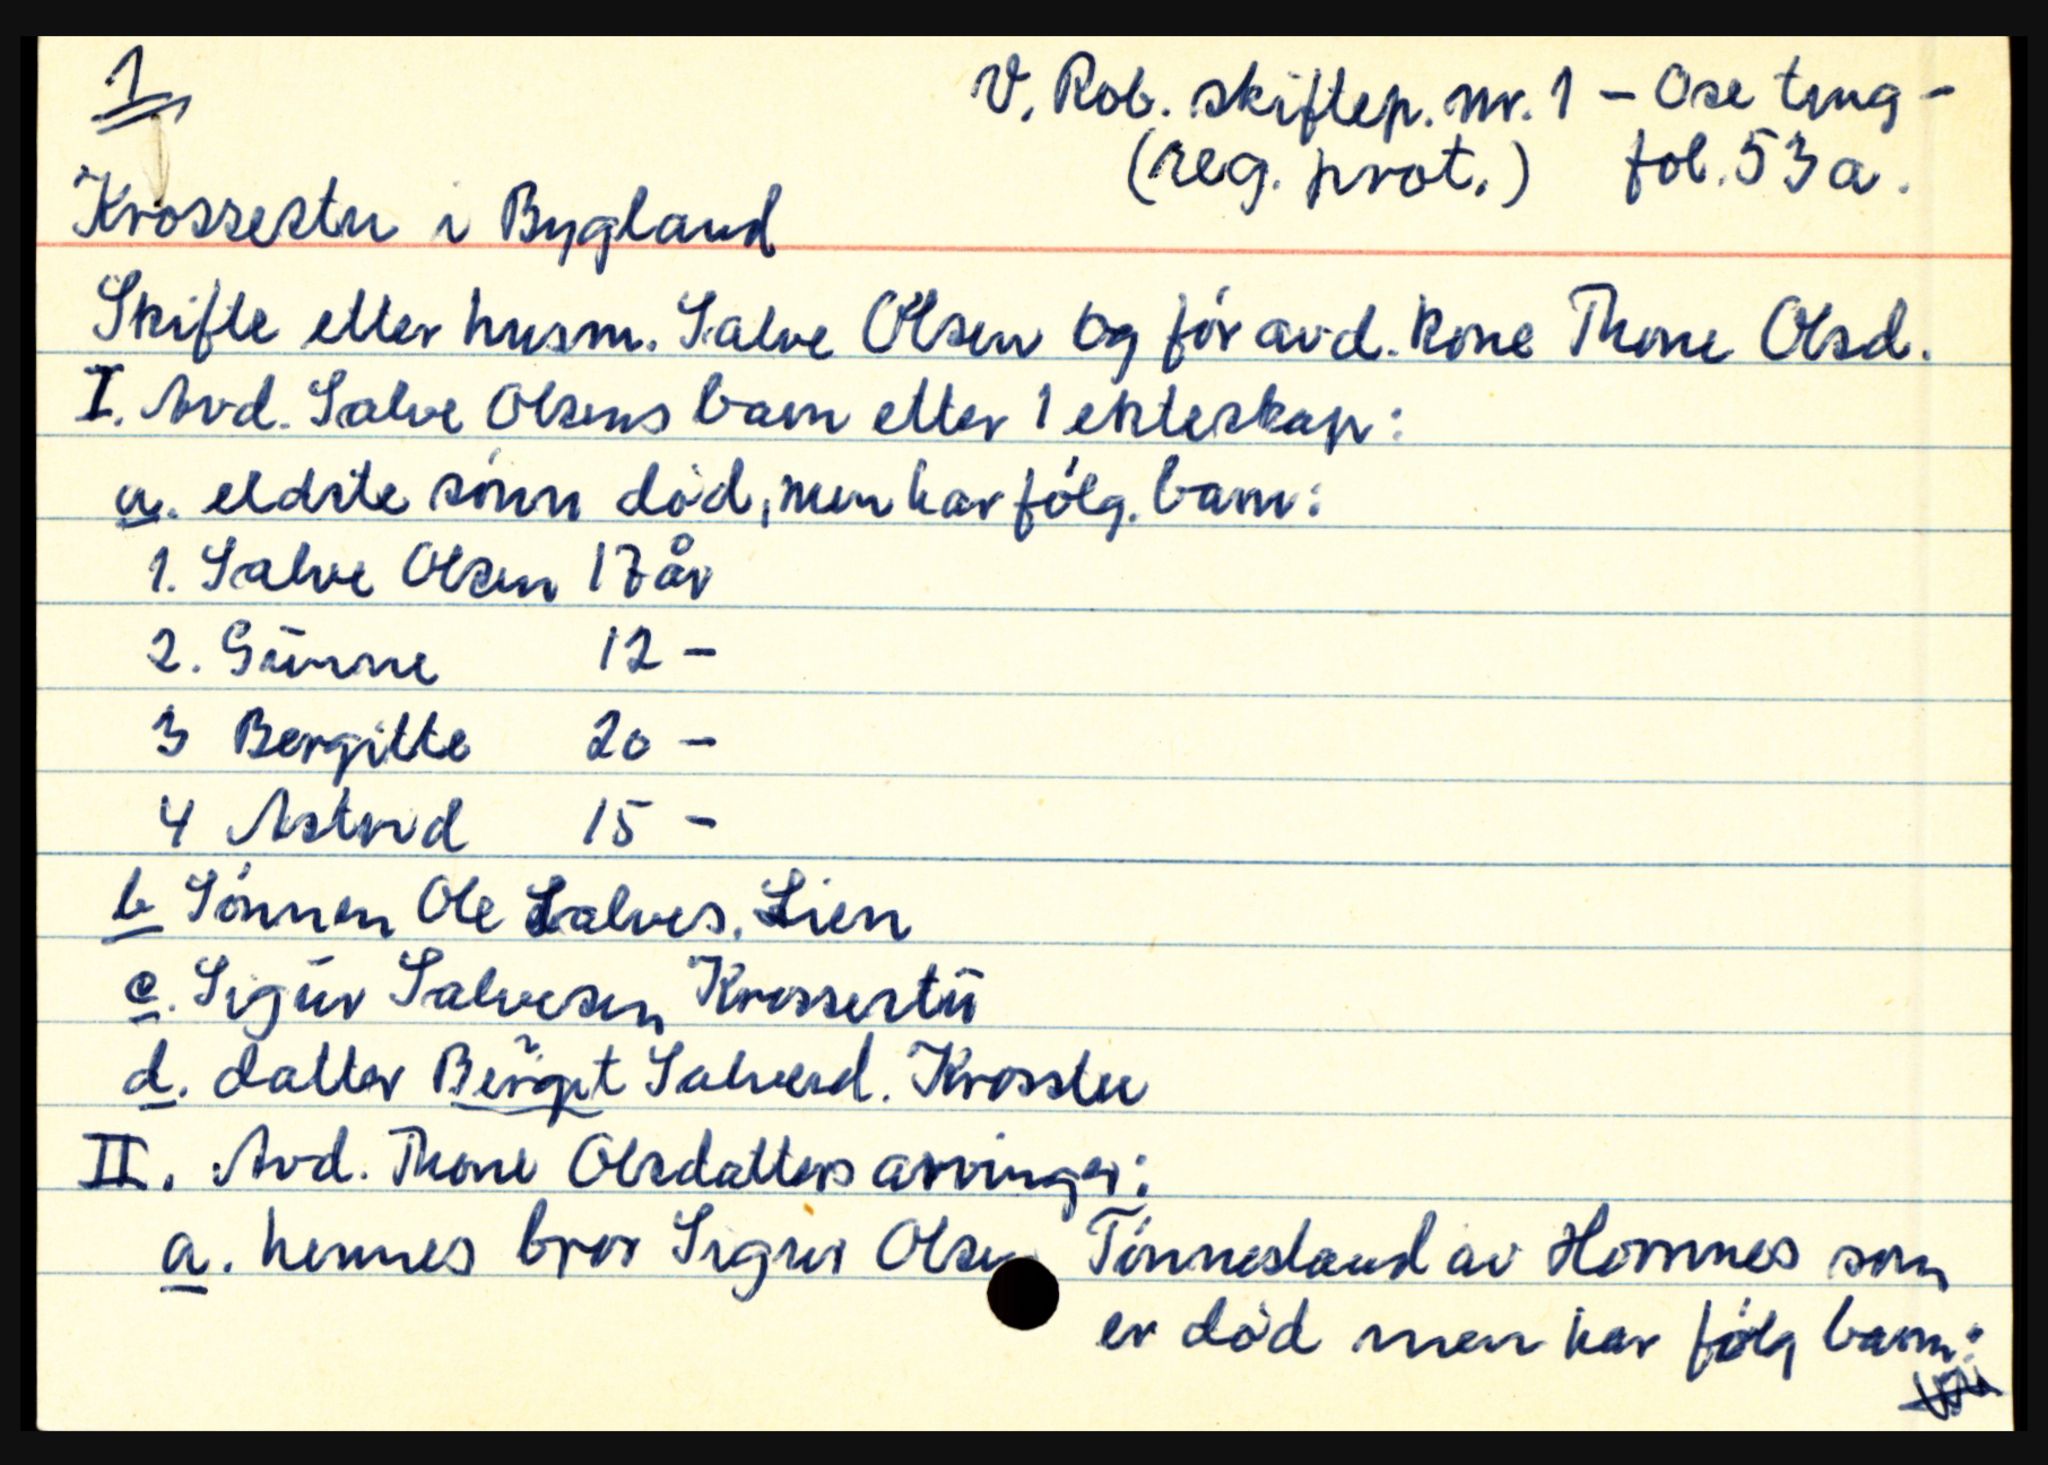 1
V. Rob. skiftep. nr. 1 - Ose ting -
(reg. prot.) fol. 53a.
Krossestu i Bygland
Skifte etter husm. Salve Olsen og før avd. kone Thone Olsd.
I. Avd. Salve Olsens barn etter 1 ekteskap:
a. eldste sønn død, men har følg. barn:
1. Salve Olsen 17 år
2. Gunne 12 -
3 Bergitte 20 -
4 Astrid 15 -
b Sønnen Ole Salves. Lien
c. Sigur Salvesen Krossestu
d. datter Berget Salvesd. Krosstu
II. Avd. Thone Olsdatters arvinger:
a. hennes bror Sigur Olsen Tønnesland av Hornnes som
er død men har følg barn: